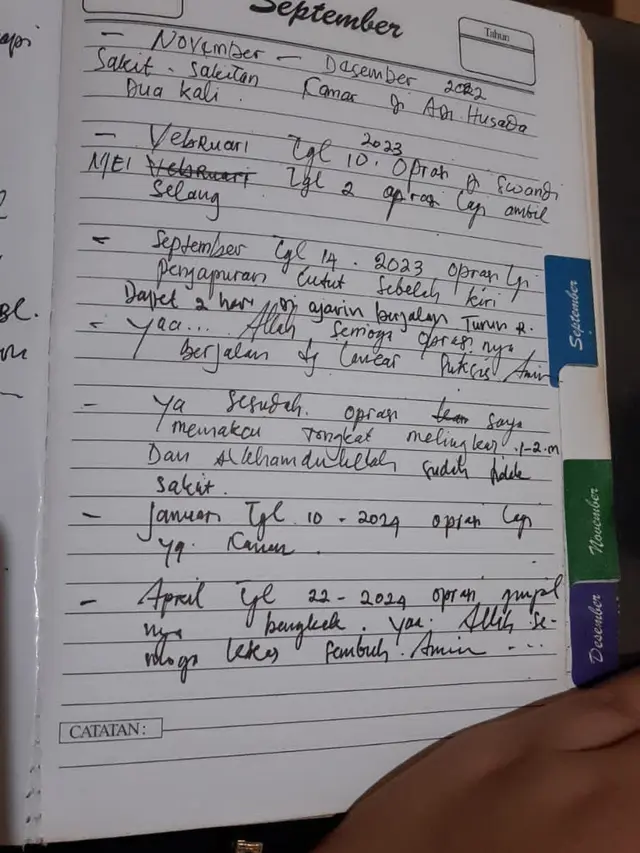 api
gl.
September
Tahun
- November - Desember 2022
Sakit - Sakitan Kamar di Adi Husada
Dua kali.
- Vebruari Tgl 10. 2023 Oprasi di Swandi
MEI Vebruari Tgl 2 oprasi lagi ambil
Selang
- September Tgl 14. 2023 oprasi lgi
pengapuran lutut sebelah kiri
Dapet 2 hari di ajarin berjalan Turun
- yaa... Allah semoga oprasi nya
berjalan dg lancar Amin
- ya sesudah oprasi saya
memakai Tongkat 1-2.m
Dan Alkhamdulillah sudah tidak
sakit.
- Januari Tgl 10 - 2024 oprasi lagi
yg. Kanan.
- April Tgl 22 - 2024 oprasi
nya bengkak. yaa. Allah se-
moga lekas sembuh. Amin ...
CATATAN:
September
November
Desember